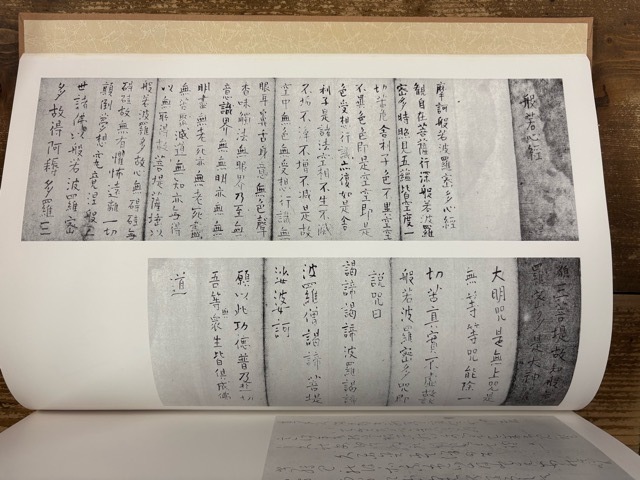 般若心経
摩訶般若波羅蜜多心経
観自在菩薩行深般若波羅
蜜多時照見五蘊皆空度一
切苦厄舎利子色不異空空
不異色色即是空空即是
色受想行識亦復如是舎
利子是諸法空相不生不滅
不垢不浄不増不減是故
空中無色無受想行識無
眼耳鼻舌身意無色聲
香味觸法無眼界乃至無
意識界無無明亦無無
明盡無老死亦無老死盡
無苦集滅道無智亦無得
以無所得故菩提薩埵依
般若波羅蜜多故心無罣礙無
罣礙故無有恐怖遠離一切
顛倒夢想究竟涅槃三
世諸佛依般若波羅蜜
多故得阿耨多羅三
藐三菩提故知般若
波羅蜜多是大神咒是
大明咒是無上咒是
無等等咒能除一
切苦真實不虚故
般若波羅蜜多咒即
説咒曰
羯諦羯諦波羅羯諦
波羅僧羯諦菩提
娑婆訶
願以此功徳普及於一切
吾等與衆生皆倶成佛
道